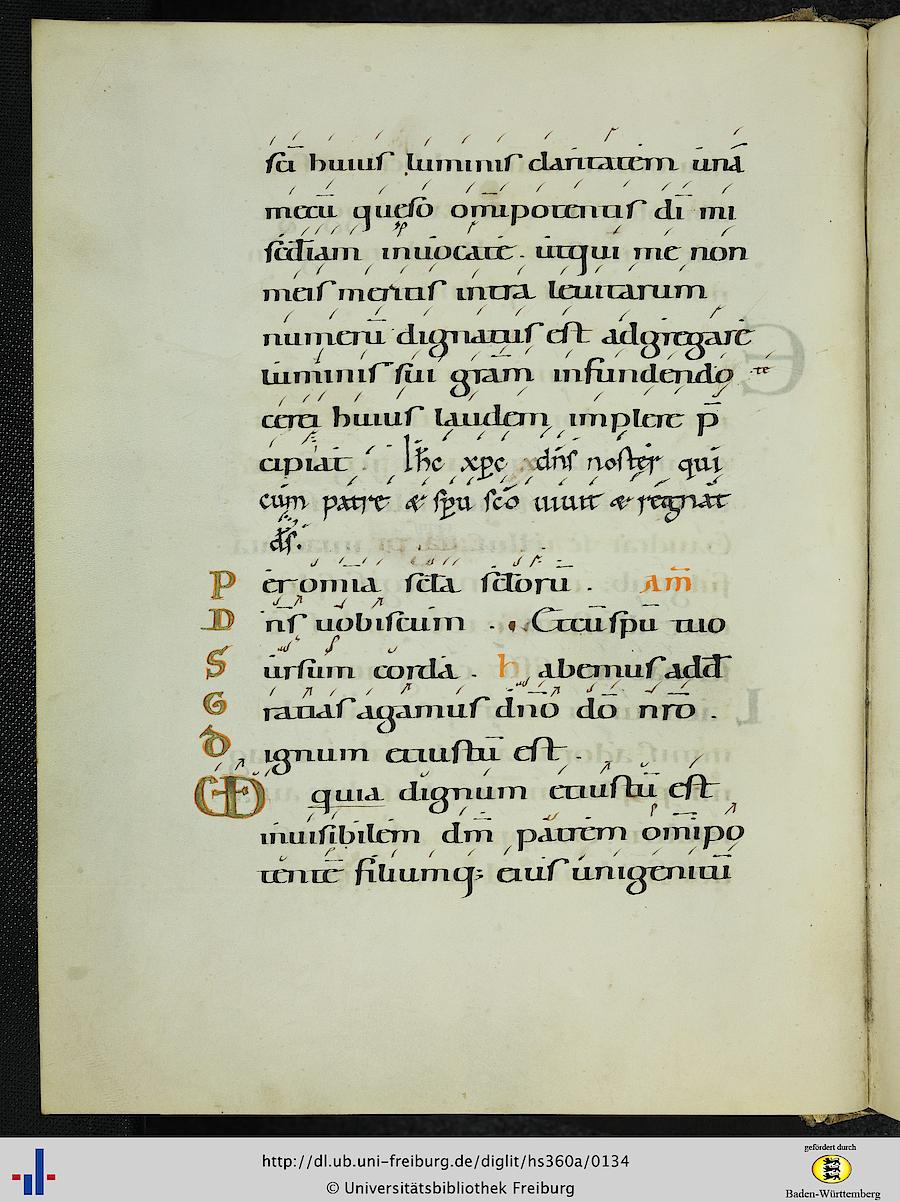 sci huius luminis claritatem una
mecū queso omīpotentis dī mi
sc̄dīam inuocate . utqui me non
meis meritis intra leuitarum
numerū dignatus est adgregare
luminis sui grām infundendo te
cerei huius laudem implere p̄
cipiat . Ihc xpc dn̄s noster qui
cum patre æ sp̄u sc̄o uiuit æ regnat
d̄s.
P er omīa scl̄a scl̄orū . am̄
D n̄s uobiscum . Etcūspū tuo
S ursum corda . h abemus add̄
G ratias agamus dn̄o d̄o nr̄o .
D ignum etiustū est .
UD quia dignum etiustū est
inuisibilem dm̄ patrem omīpo
tentē filiumq; eius unigenitū
http://dl.ub.uni-freiburg.de/diglit/hs360a/0134
© Universitätsbibliothek Freiburg
gefördert durch
Baden-Württemberg